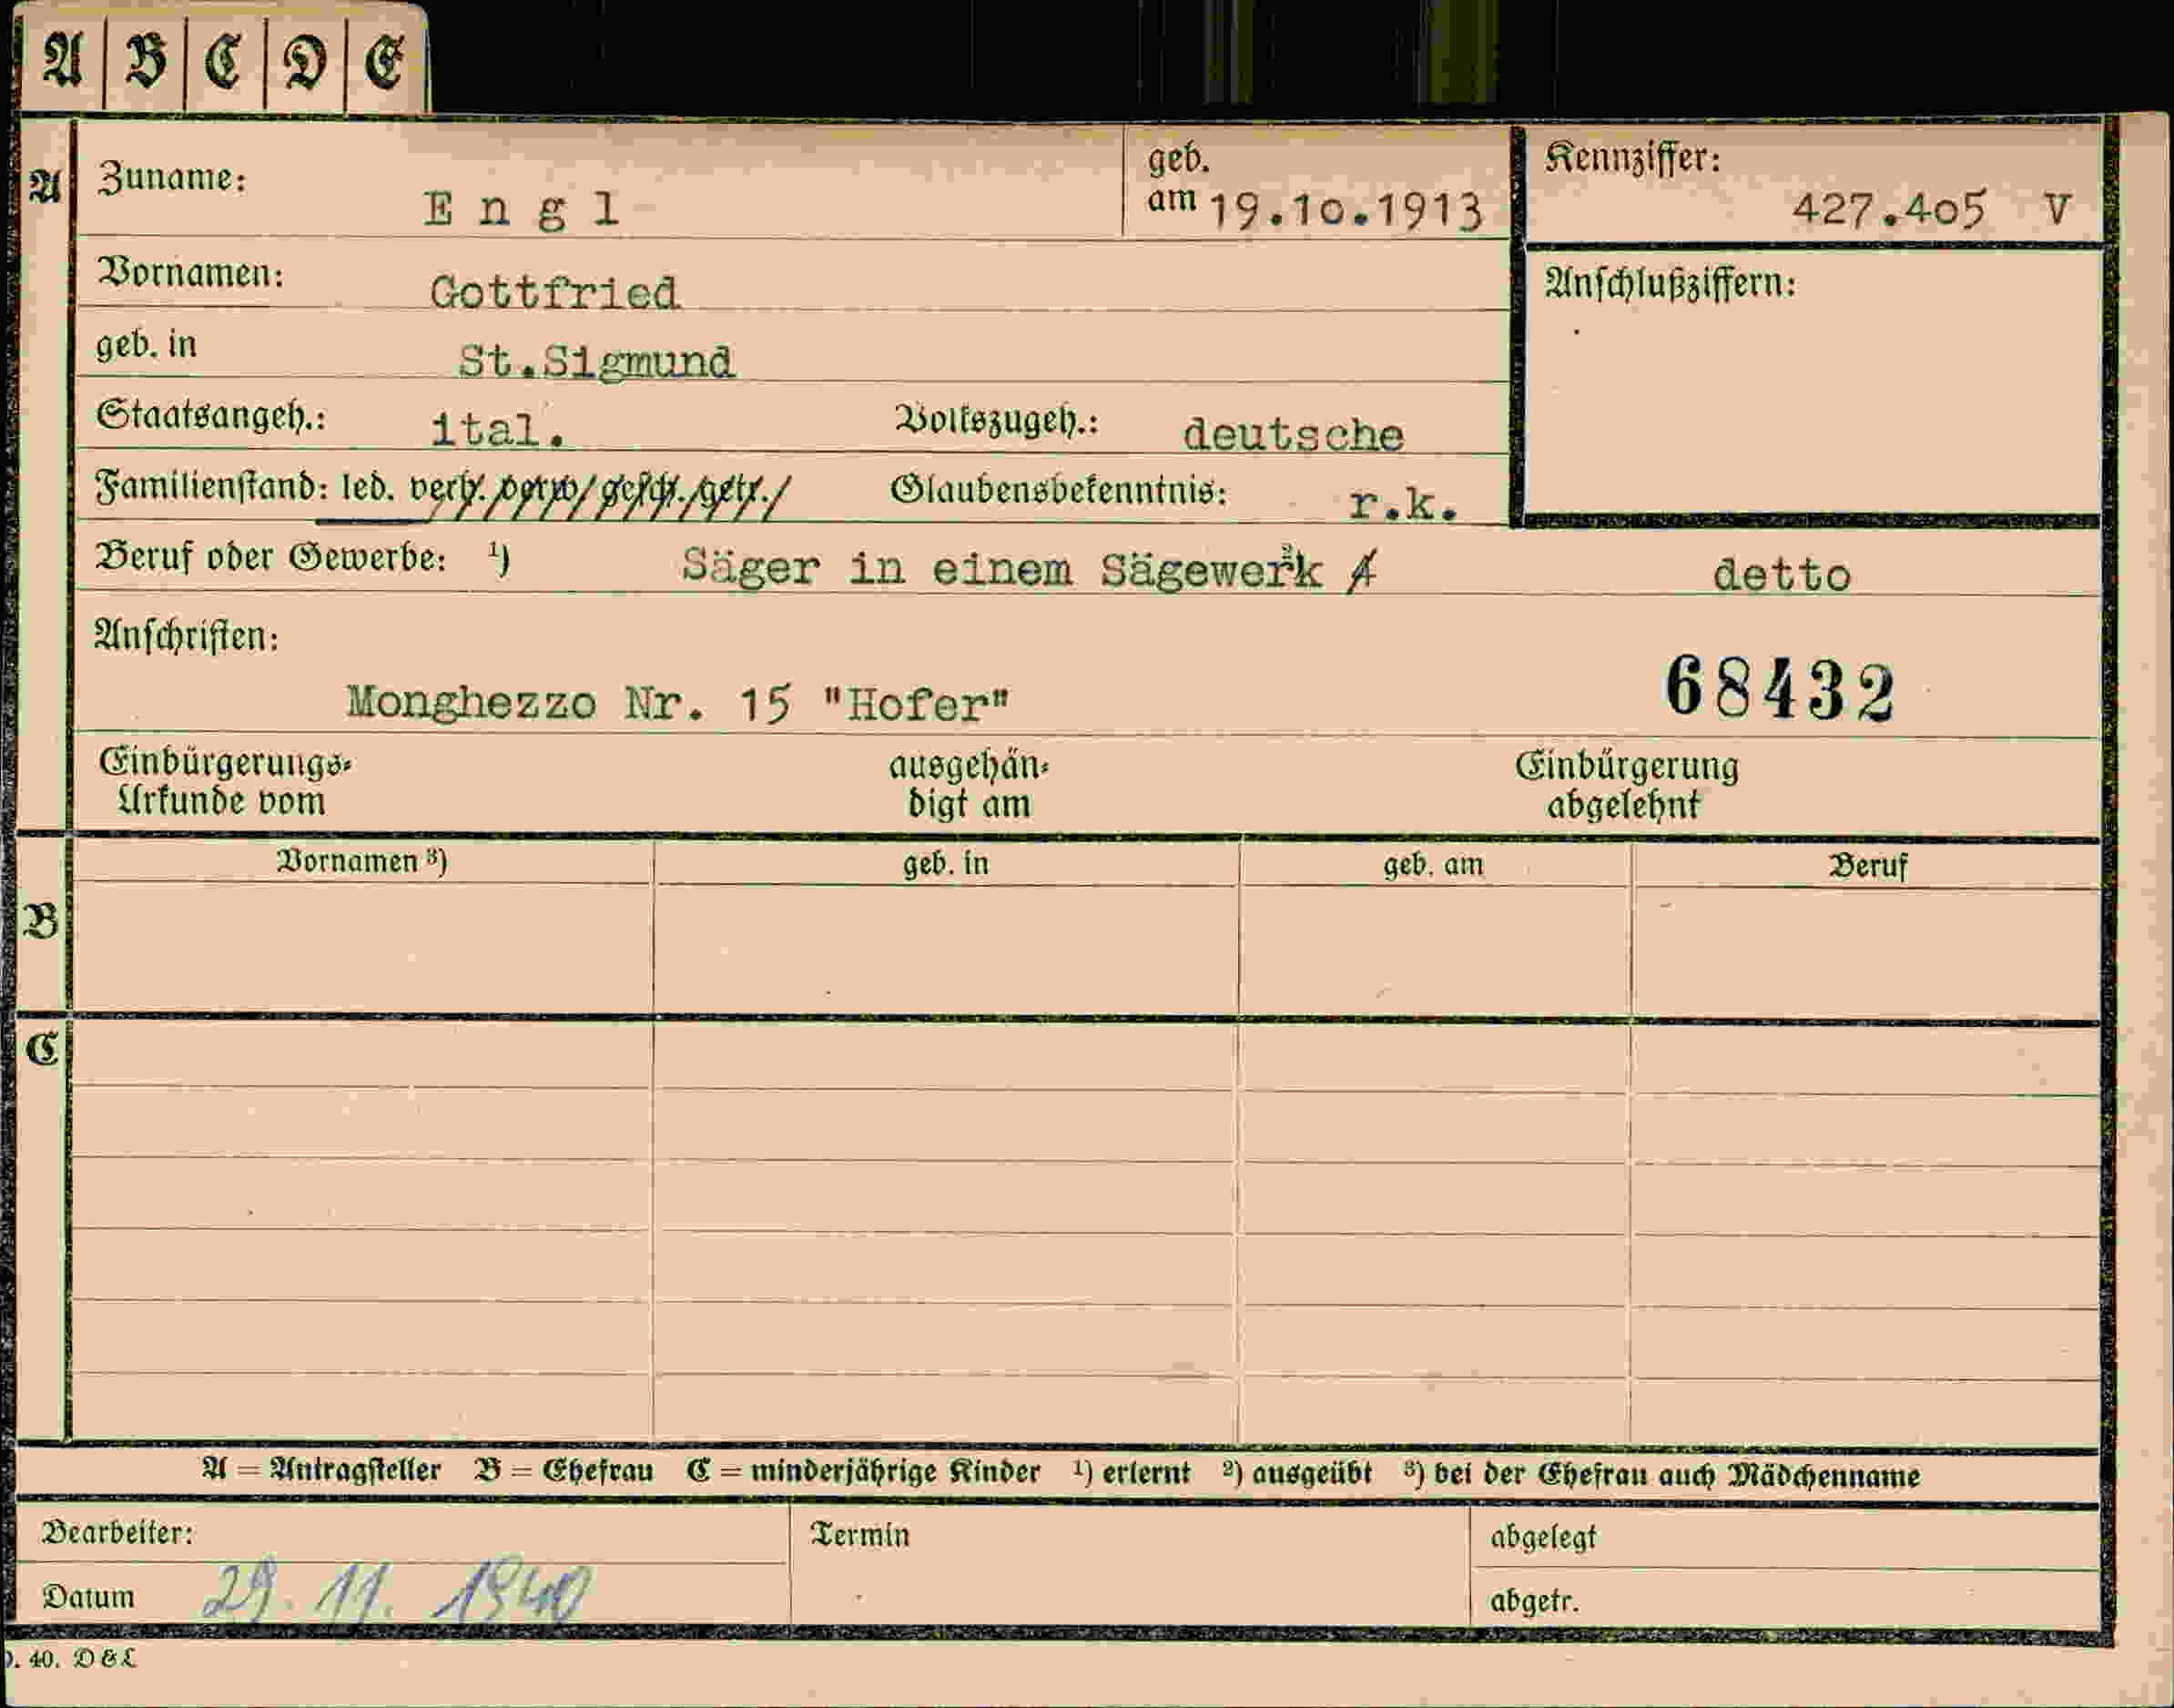 A B C D E
A Zuname: Engl geb. am 19.10.1913 Kennziffer: 427.405 V
Vornamen: Gottfried Anschlußziffern:
geb. in St.Sigmund
Staatsangeh.: ital. Volkszugeh.: deutsche
Familienstand: led. verh. verw/ gesch./getr./ Glaubensbekenntnis: r.k.
Beruf oder Gewerbe: ¹) Säger in einem Sägewerk ²) detto
Anschriften:
Monghezzo Nr. 15 "Hofer" 68432
Einbürgerungs- ausgehän- Einbürgerung
Urkunde vom digt am abgelehnt
Vornamen ³) geb. in geb. am Beruf
B
C
A = Antragsteller B = Ehefrau C = minderjährige Kinder ¹) erlernt ²) ausgeübt ³) bei der Ehefrau auch Mädchenname
Bearbeiter: Termin abgelegt
Datum 29. 11. 1940 abgetr.
. 40. D & L